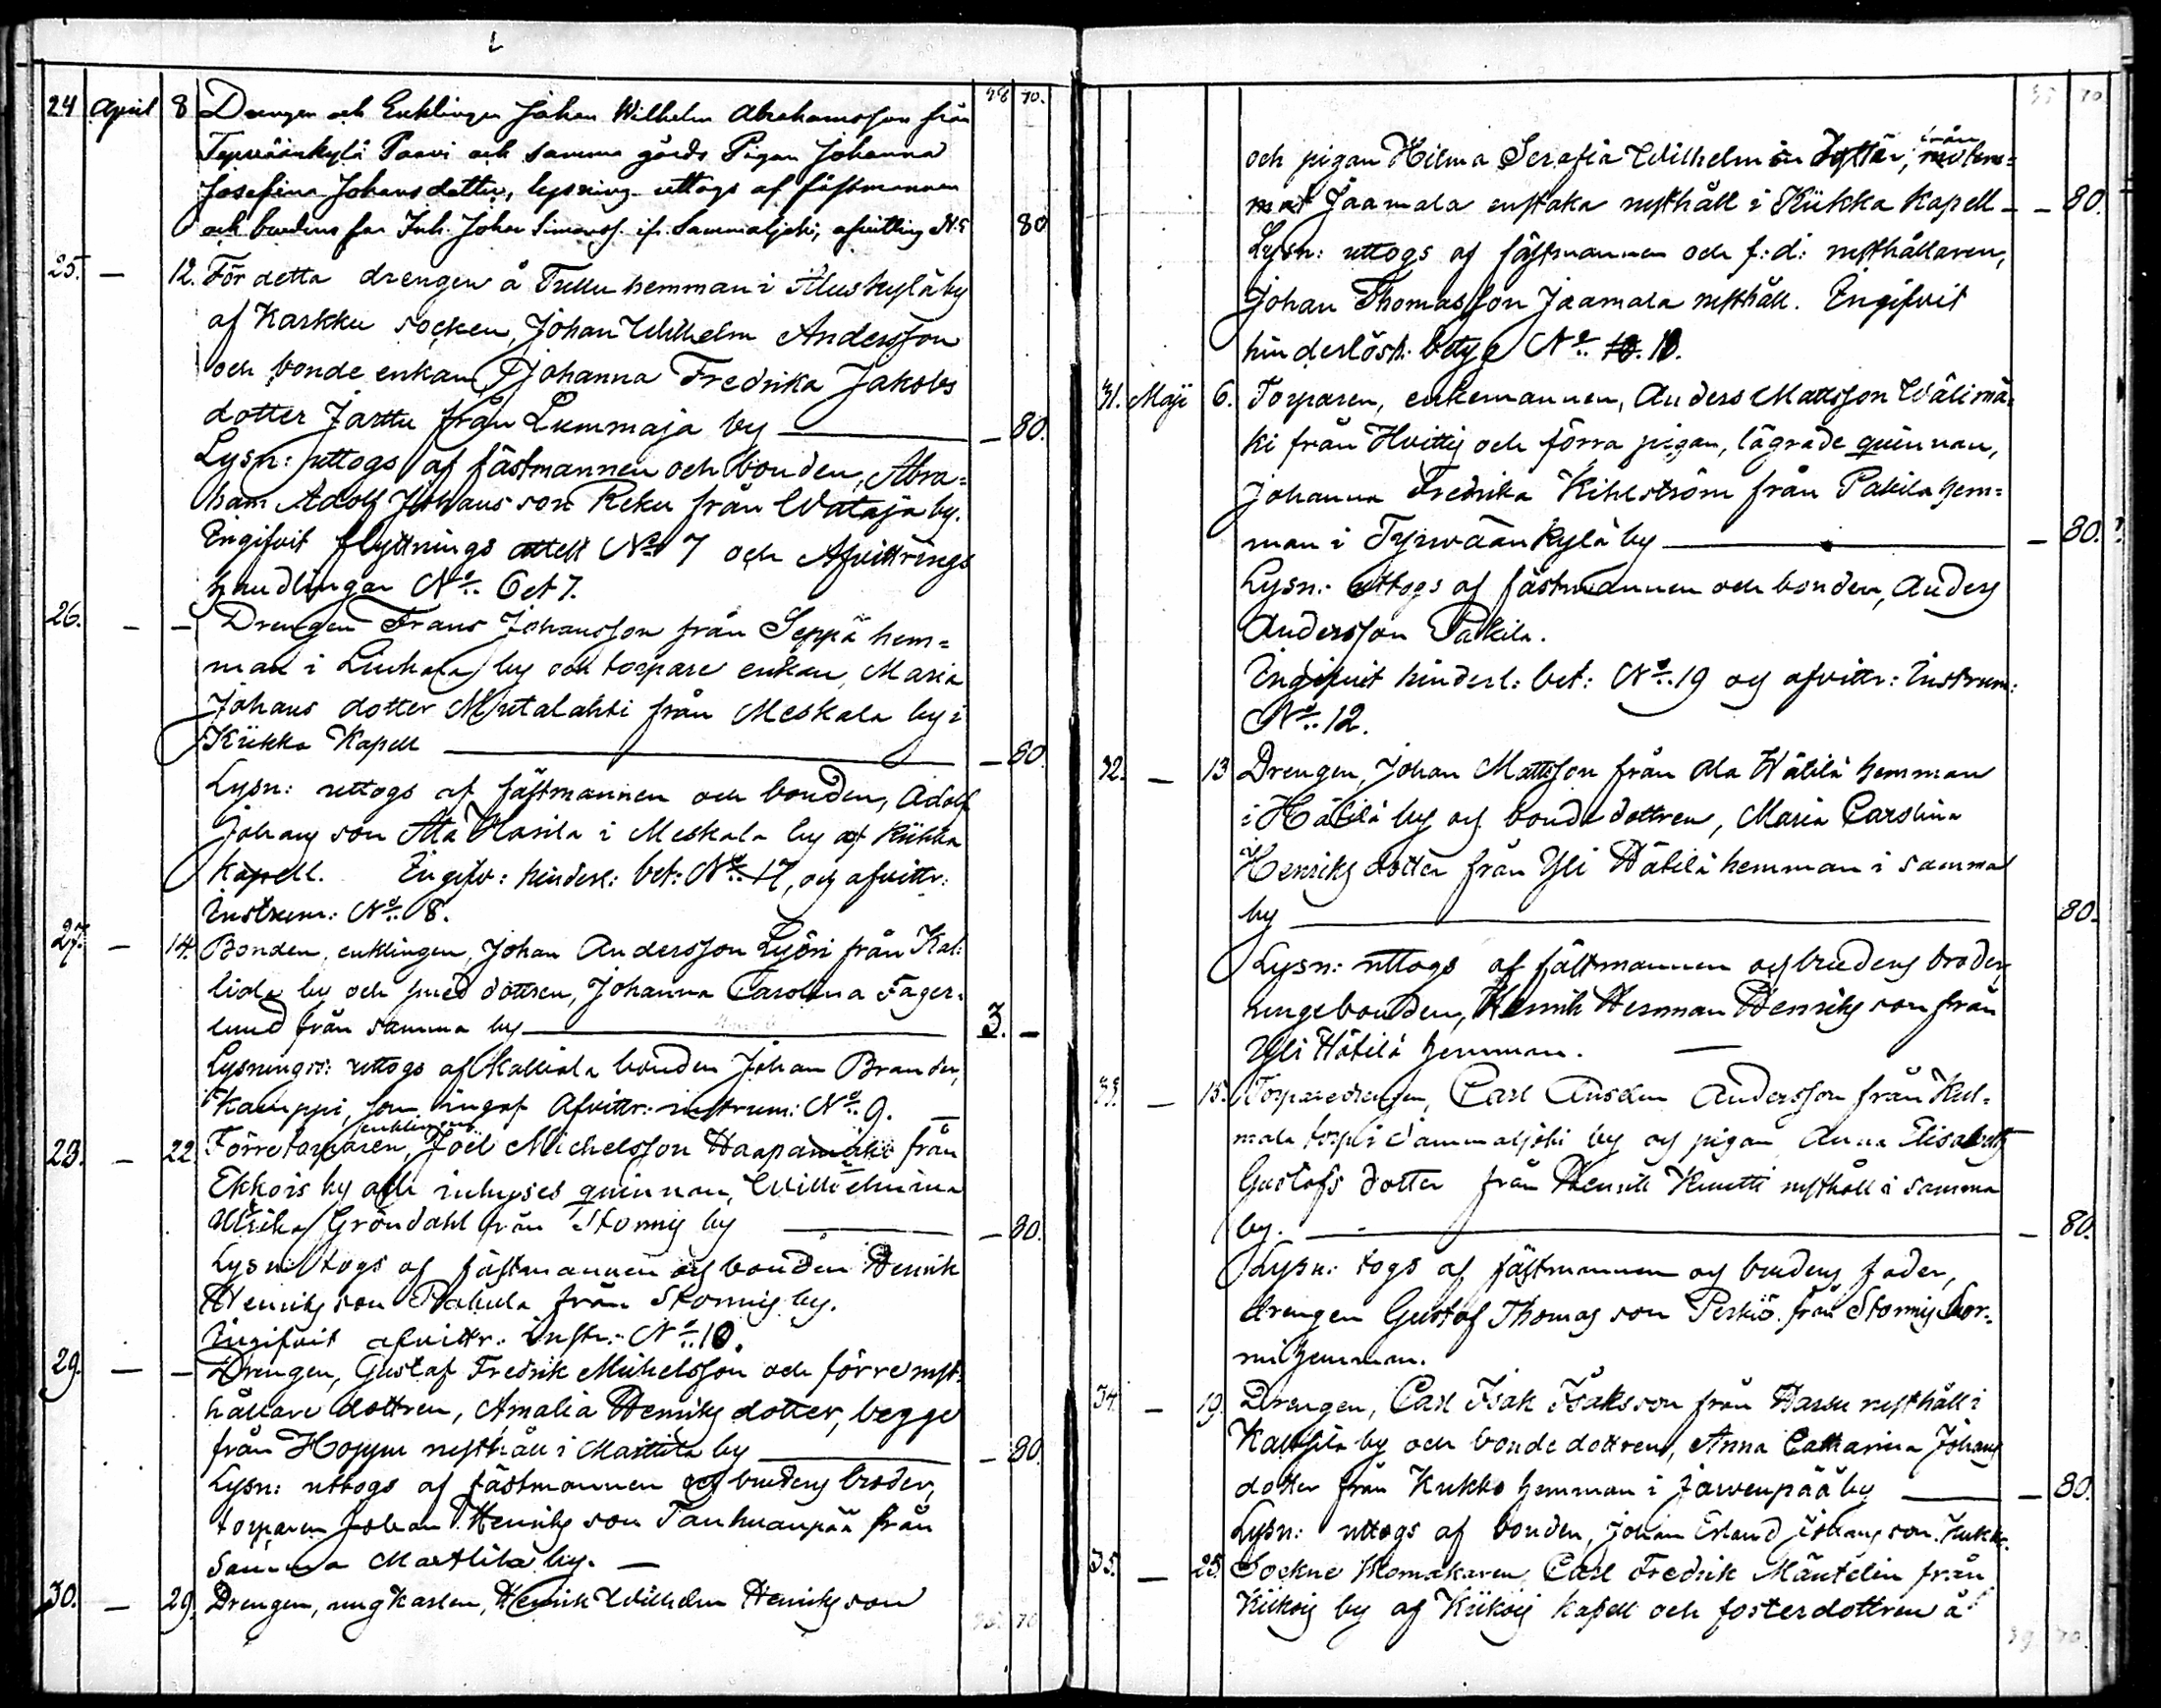 24 April 8 Drengen och Enklingen Johan Wilhelm Abrahamsson från
Tyrväänkylä Paavi och samma gårds Pigan Johanna
Josefina Johansdotter, lysning uttogs af fästmannen
och brudens far Inh. Johan Simonss. ifr. Sammaljoki, afvittring N:5 80
25. — 12. För detta drengen å Tullu hemman i Aluskylä by
af Karkku socken, Johan Wilhelm Andersson
och bonde enkan Johanna Fredrika Jakobs
dotter Jarttu från Lummaja by — 80.
Lysn: uttogs af fästmannen och bonden, Abra=
ham Adolf Johans son Reku från Wataja by.
Ingifvit flyttnings attest No 7 och Afvittrings
handlingar No 6 et 7.
26. — — Drengen Frans Johansson från Seppä hem=
man i Liuhala by och torpare enkan, Maria
Johans dotter Mutalahti från Meskala by i
Kiikka Kapell — 80.
Lysn: uttogs af fästmannen och bonden, Adolf
Johans son Ala Hasila i Meskala by af Kiikka
Kapell. Ingifv: hinderl: bet: No 17, och afvittr:
Instrum: No 8.
27. — 14. Bonden, enklingen, Johan Andersson Lyöri från Kal=
liala by och smed dottren, Johanna Carolina Fager=
lund från samma by — 3. —
Lysningss: uttogs af Kalliala bonden Johan Brander,
Kamppi, som ingaf Afvittr: instrum: No 9. —
enklingen
28. — 22 Förre torparen, Joël Michelsson Haapamäki från
Ekkois by och inhyses quinnan, Wilhelmina
Ulrika Gröndahl från Stormis by — 80.
Lysn: togs af fästmannen och bonden Henrik
Henriks son Pakula från Stormis by.
Ingifvit afvittr: Instr: No 10.
29. — — Drengen, Gustaf Fredrik Michelsson och förre rust=
hållare dottren, Amalia Henriks dotter, begge
från Hoppu rusthåll i Marttila by — 80.
Lysn: uttogs af fästmannen och brudens broder,
torparen Johan Henriks son Tanhuanpää från
samma Marttila by. —
30. — 29. Drengen, ungkarlen, Henrik Wilhelm Henriks son
från
och pigan Hilma Serafia Wilhelms dotter,
Jaamala enstaka rusthåll i Kiikka Kapell — 80.
Lysn: uttogs af fästmannen och f:d: rusthållaren,
Johan Thomasson Jaamala rusthåll. Ingifvit
hinderlösh: betyg No 18.
31. Maji 6. Torparen, enkemannen, Anders Mattsson Wälimä=
ki från Hvittis och förra pigan, lägrade quinnan,
Johanna Fredrika Kihlström från Pakila hem=
man i Tyrwäänkylä by — 80. ?
Lysn: uttogs af fästmannen och bonden, Anders
Andersson Pakila.
Ingifvit hinderl: bet: No 19 och afvittr: Instrum:
No 12.
32. — 13 Drengen, Johan Mattsson från Ala Hätilä hemman
i Hätilä by och bonde dottren, Maria Carolina
Henriks dotter från Yli Hätilä hemman i samma
by 80.
Lysn: uttogs af fästmannen och brudens broder,
unge bonden, Henrik Herman Henriks son från
Yli Hätilä hemman. —
33. — 15. Torparedrengen, Carl Anselm Andersson från Kul=
mala torp i Sammaljoki by och pigan Anna Elisabeth
Gustafs dotter från Henrik Knuutti rusthåll i samma
by. — 80.
Lysn: togs af fästmannen och brudens fader,
drengen Gustaf Thomas son Perkiö från Stormis Stor=
mi hemman.
34. — 19. Drengen, Carl Isak Isaksson från Hassu rusthåll i
Kaltsila by och bonde dottren, Anna Catharina Johans
dotter från Kukko hemman i Jarvenpää by — 80.
Lysn: uttogs af bonden, Johan Erland Johans son Kukko.
35. — 25. Sockne skomakaren, Carl Fredrik Mäntelin från
Kiikois by af Kiikois kapell och fosterdottren å